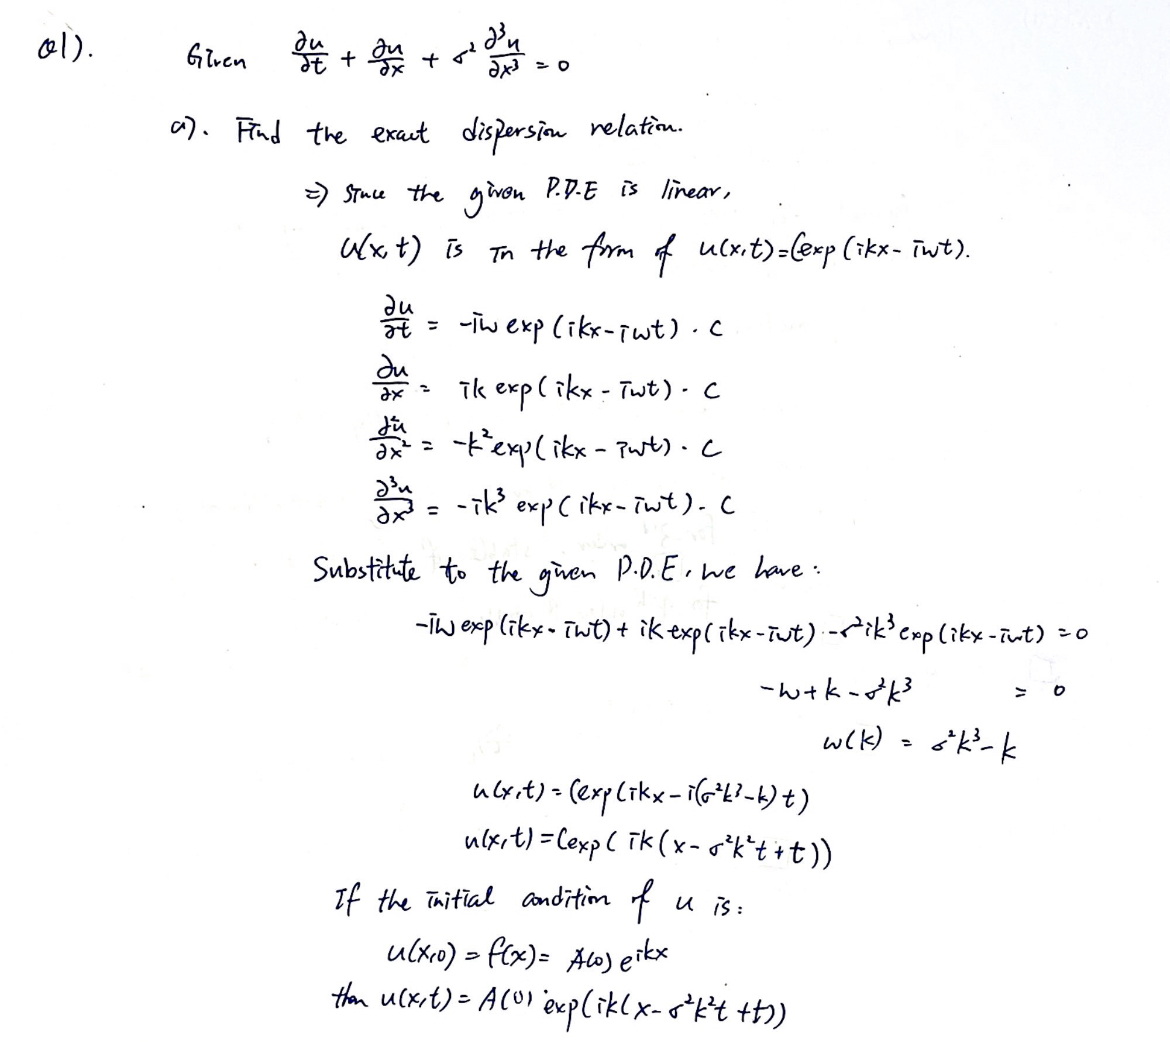 Q1). Given ∂u/∂t + ∂u/∂x + σ² ∂³u/∂x³ = 0
a). Find the exact dispersion relation.
⇒ Since the given P.D.E is linear,
u(x,t) is in the form of u(x,t)=Cexp(ikx-iwt).
∂u/∂t = -iw exp(ikx-iwt) · C
∂u/∂x = ik exp(ikx-iwt) · C
∂²u/∂x² = -k² exp(ikx-iwt) · C
∂³u/∂x³ = -ik³ exp(ikx-iwt) · C
Substitute to the given P.D.E, we have:
-iw exp(ikx-iwt) + ik exp(ikx-iwt) - σ²ik³ exp(ikx-iwt) = 0
-w+k-σ²k³ = 0
w(k) = σ²k³-k
u(x,t) = Cexp(ikx-i(σ²k³-k)t)
u(x,t) = Cexp(ik(x-σ²k²t+t))
If the initial condition of u is:
u(x,0) = f(x) = A(0) e^{ikx}
then u(x,t) = A(0) exp(ik(x-σ²k²t+t))